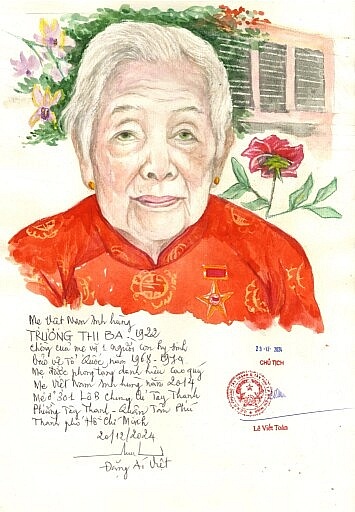 Mẹ Việt Nam Anh hùng
TRƯƠNG THỊ BA - 1922
Chồng của mẹ và 1 người con hy sinh
Bảo vệ Tổ Quốc năm 1968 - 1974
Mẹ được phong tặng danh hiệu cao quý
Mẹ Việt Nam Anh hùng năm 2014
Mẹ ở 301 Lô B Chung cư Tây Thạnh
Phường Tây Thạnh - Quận Tân Phú
Thành phố Hồ Chí Minh
20/12/2024
Đặng Ái Việt
23-12-2024
CHỦ TỊCH
Lê Viết Toàn